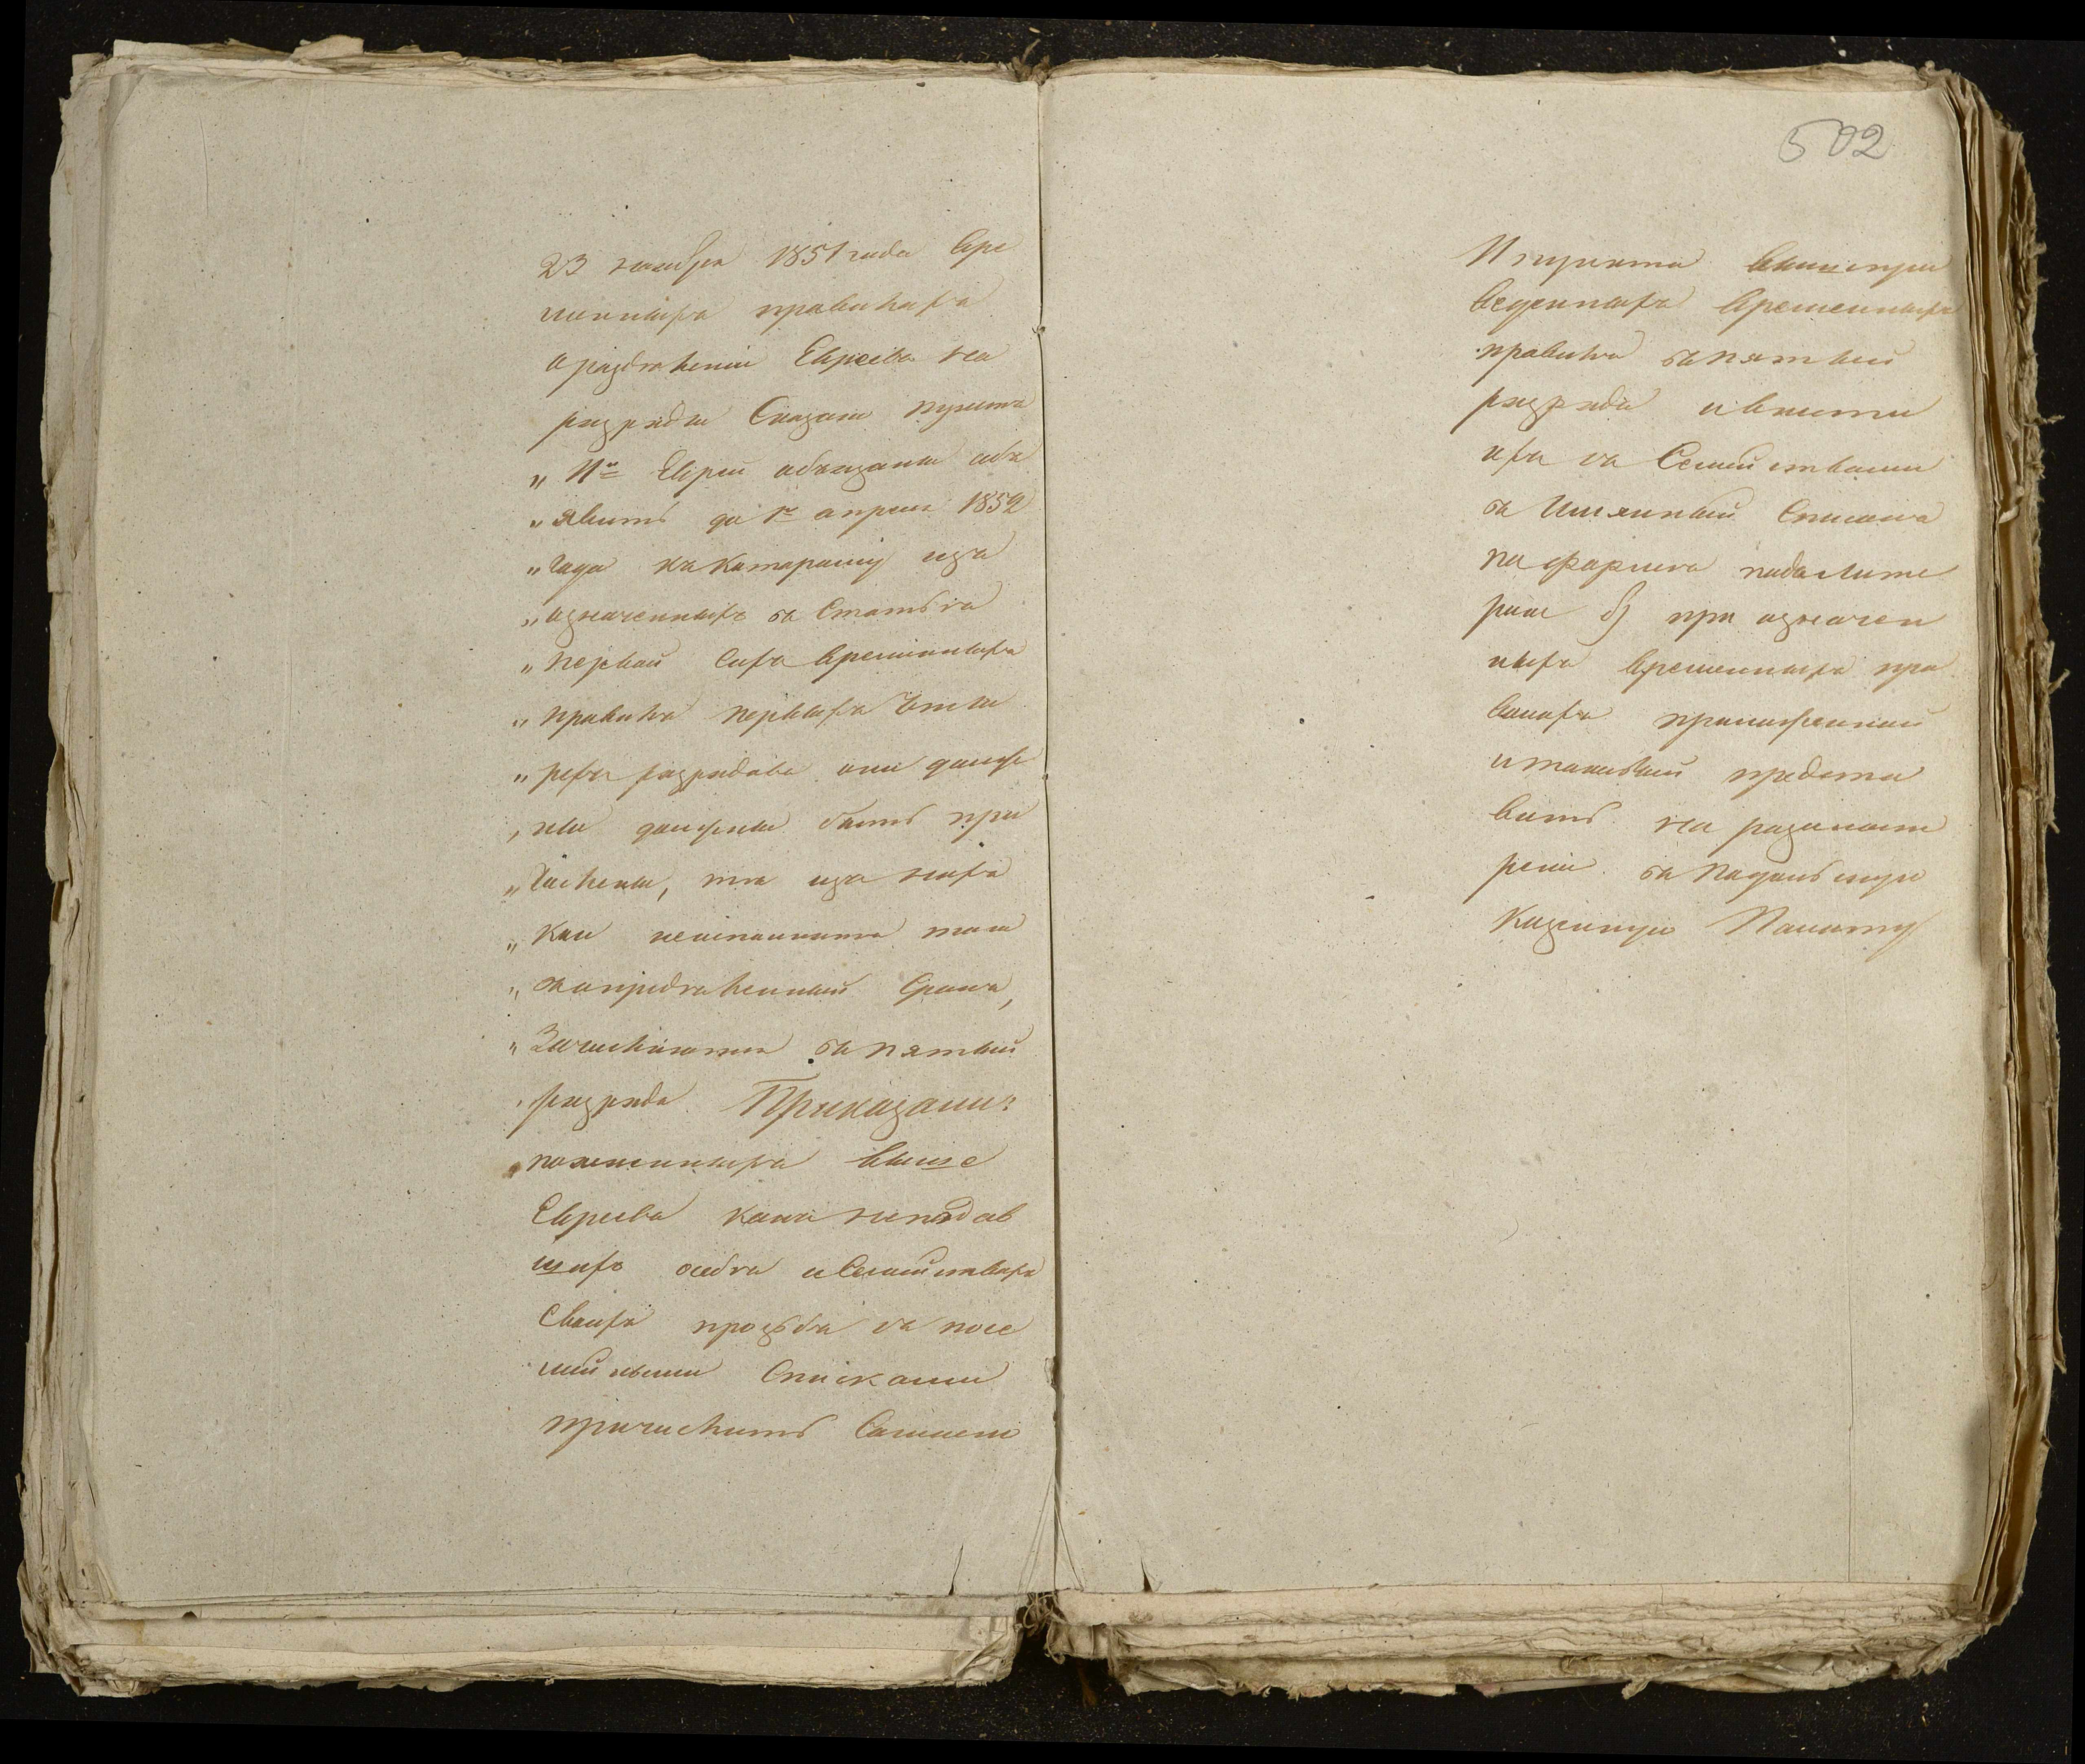 23 ноября 1851 года вре
менныхъ правилахъ
о раздѣленіи Евреевъ на
разряды Сказано пункта
„ 11го Евреи обязаны объ
„ явить до 1го апрѣля 1852
„ года къ которому изъ
„ означенныхъ въ Статьѣ
„ первой Сихъ временныхъ
„ правилъ первыхъ Четы
„ рехъ разрядовъ они долж
„ ны должны быть при
„ числены, тѣ изъ нихъ
„ кои неисполнятъ того
„ въ опредѣленный Срокъ,
„ Зачисляются въ пятый
„ разрядъ Приказали:
поясненныхъ выше
Евреевъ какъ неподав
шихъ осебѣ и Семействахъ
Своихъ прозьбъ съ посе
мейными Списками
причислить Согласно
502
11 пункта вышепри
веденныхъ временныхъ
правилъ въ пятый
разрядъ и внести
ихъ съ Семействами
въ Имянный Списокъ
по формѣ подъ Лите
рою б) при означен
ныхъ временныхъ пра
вилахъ приложенной
и таковый предста
вить на разсмот
реніе въ Подольскую
Казенную Палату